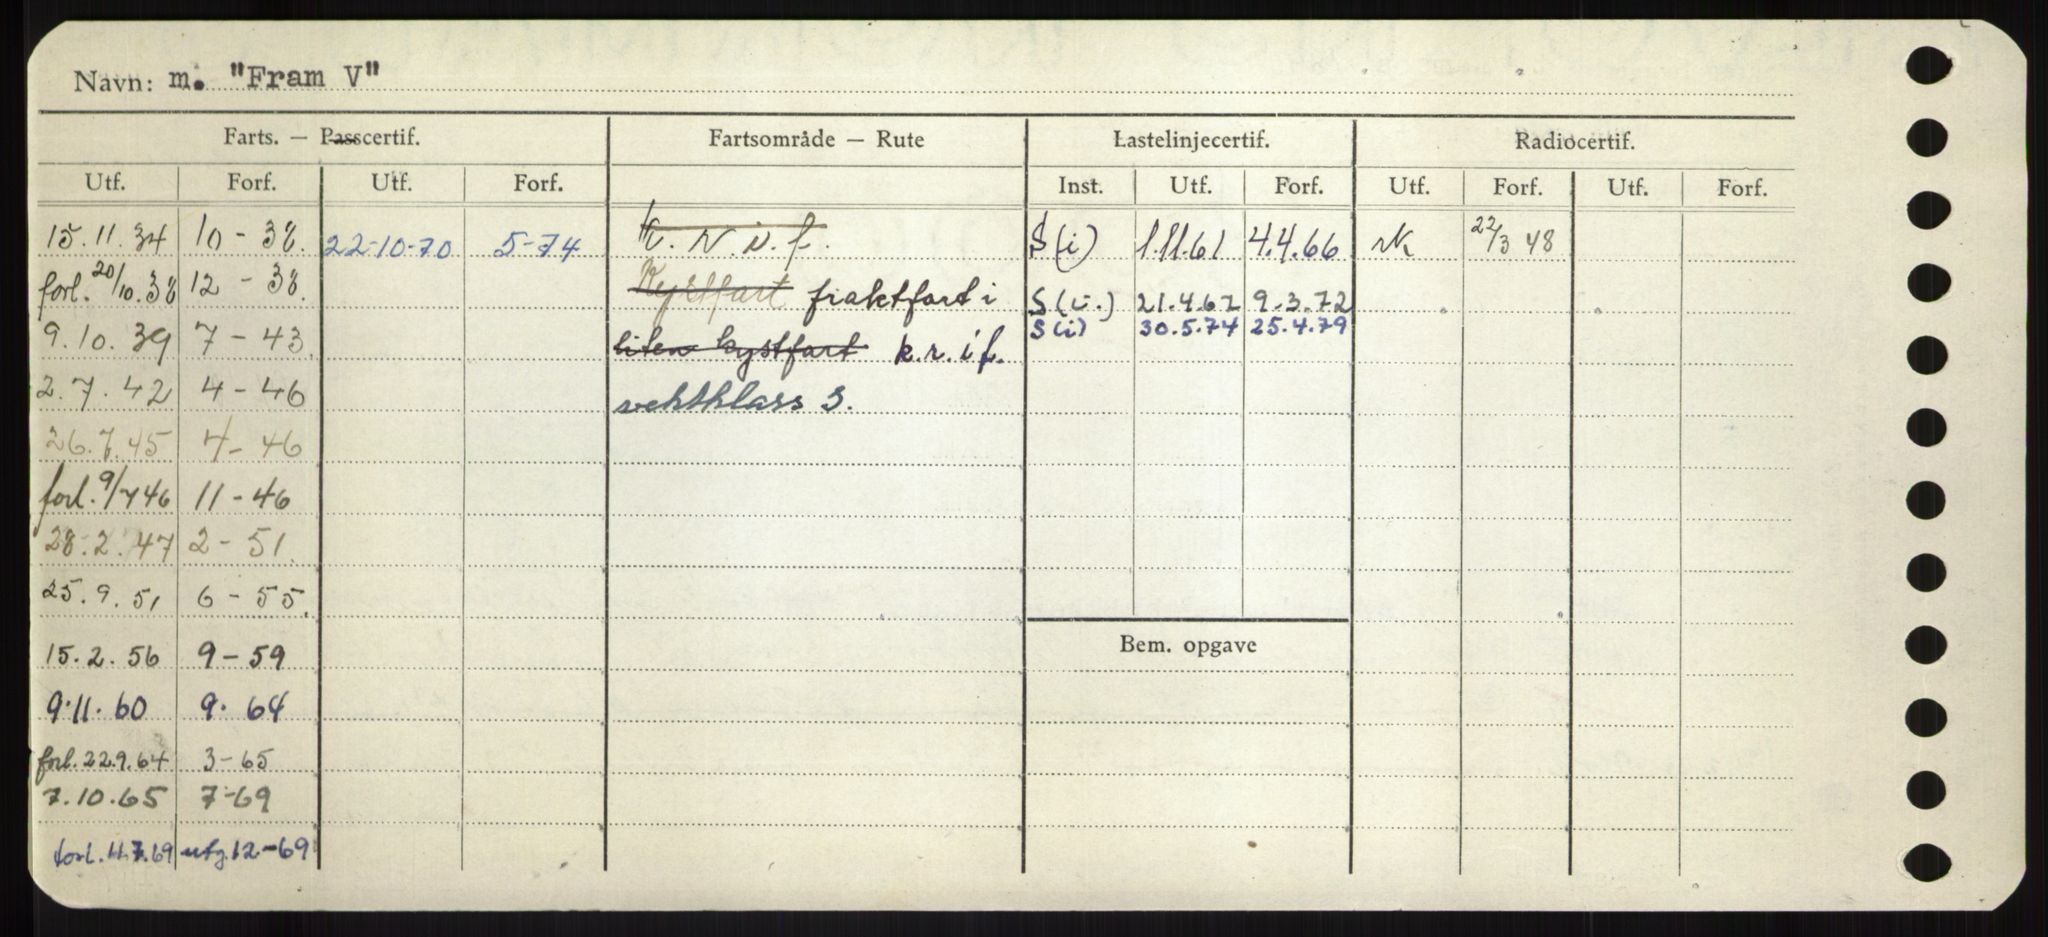 Navn: m. "Fram V"
Farts. — Passcertif. Fartsområde — Rute Lastelinjecertif. Radiocertif.
Utf. Forf. Utf. Forf. Inst. Utf. Forf. Utf. Forf. Utf. Forf.
15.11.34 10-38. 22-10-70 5-74 K.N.i.f. S(i) 1.11.61 4.4.66 rk 22/3 48
forl. 20/10.38 12-38. Kystfart fraktfart i S(i.) 21.4.67 9.3.72
S(i) 30.5.74 25.4.79
9.10.39 7-43 liten kystfart k.r.i f.
2.7.42 4-46 vektklass 3.
26.7.45 4-46
forl. 9/7 46 11-46
28.2.47 2-51.
25.9.51 6-55.
15.2.56 9-59 Bem. opgave
9.11.60 9.64
forl. 22.9.64 3-65
7.10.65 7-69
forl. 11.7.69 utg. 12-69